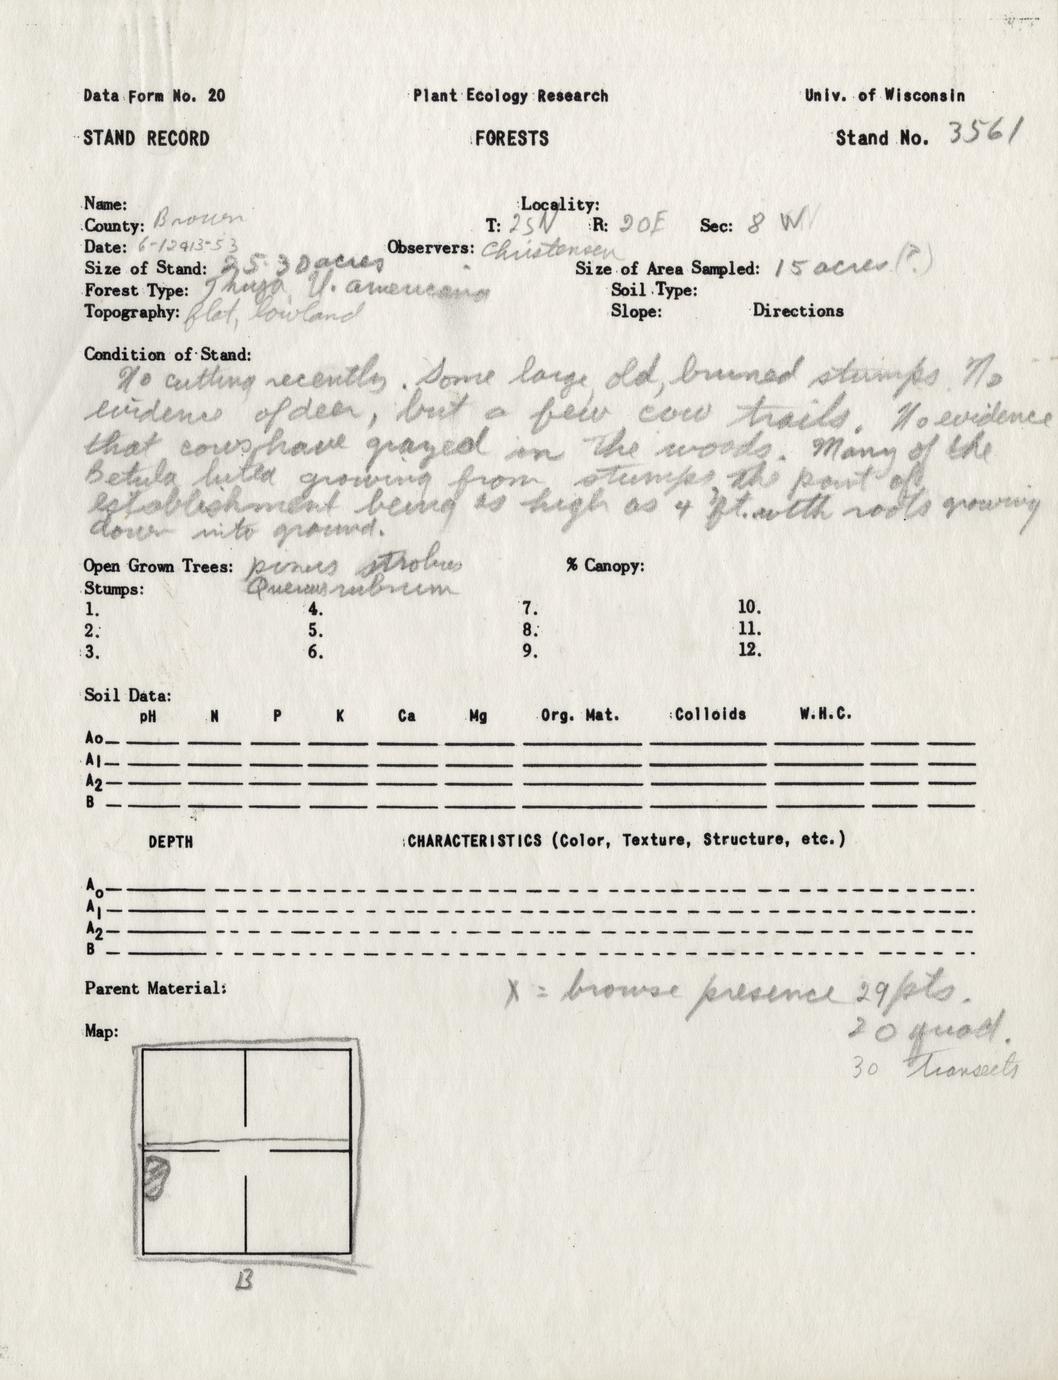 Data Form No. 20 Plant Ecology Research Univ. of Wisconsin
STAND RECORD FORESTS Stand No. 3561
Name: Locality:
County: Brown T: 25N R: 20E Sec: 8 W
Date: 6-12&13-53 Observers: Christensen
Size of Stand: 25-30 acres Size of Area Sampled: 15 acres (?)
Forest Type: Thuja, U. americana Soil Type:
Topography: flat, lowland Slope: Directions
Condition of Stand:
No cutting recently. Some large, old, burned stumps. No
evidence of deer, but a few cow trails. No evidence
that cows have grazed in the woods. Many of the
Betula lutea growing from stumps, the point of
establishment being as high as 4 ft. with roots growing
down into ground.
Open Grown Trees: pinus strobus % Canopy:
Stumps: Quercus rubrum
1. 4. 7. 10.
2. 5. 8. 11.
3. 6. 9. 12.
Soil Data:
pH N P K Ca Mg Org. Mat. Colloids W.H.C.
Ao
A1
A2
B
DEPTH CHARACTERISTICS (Color, Texture, Structure, etc.)
Ao
A1
A2
B
Parent Material: X = browse presence 29 pts.
20 quad.
Map:
30 transects
B